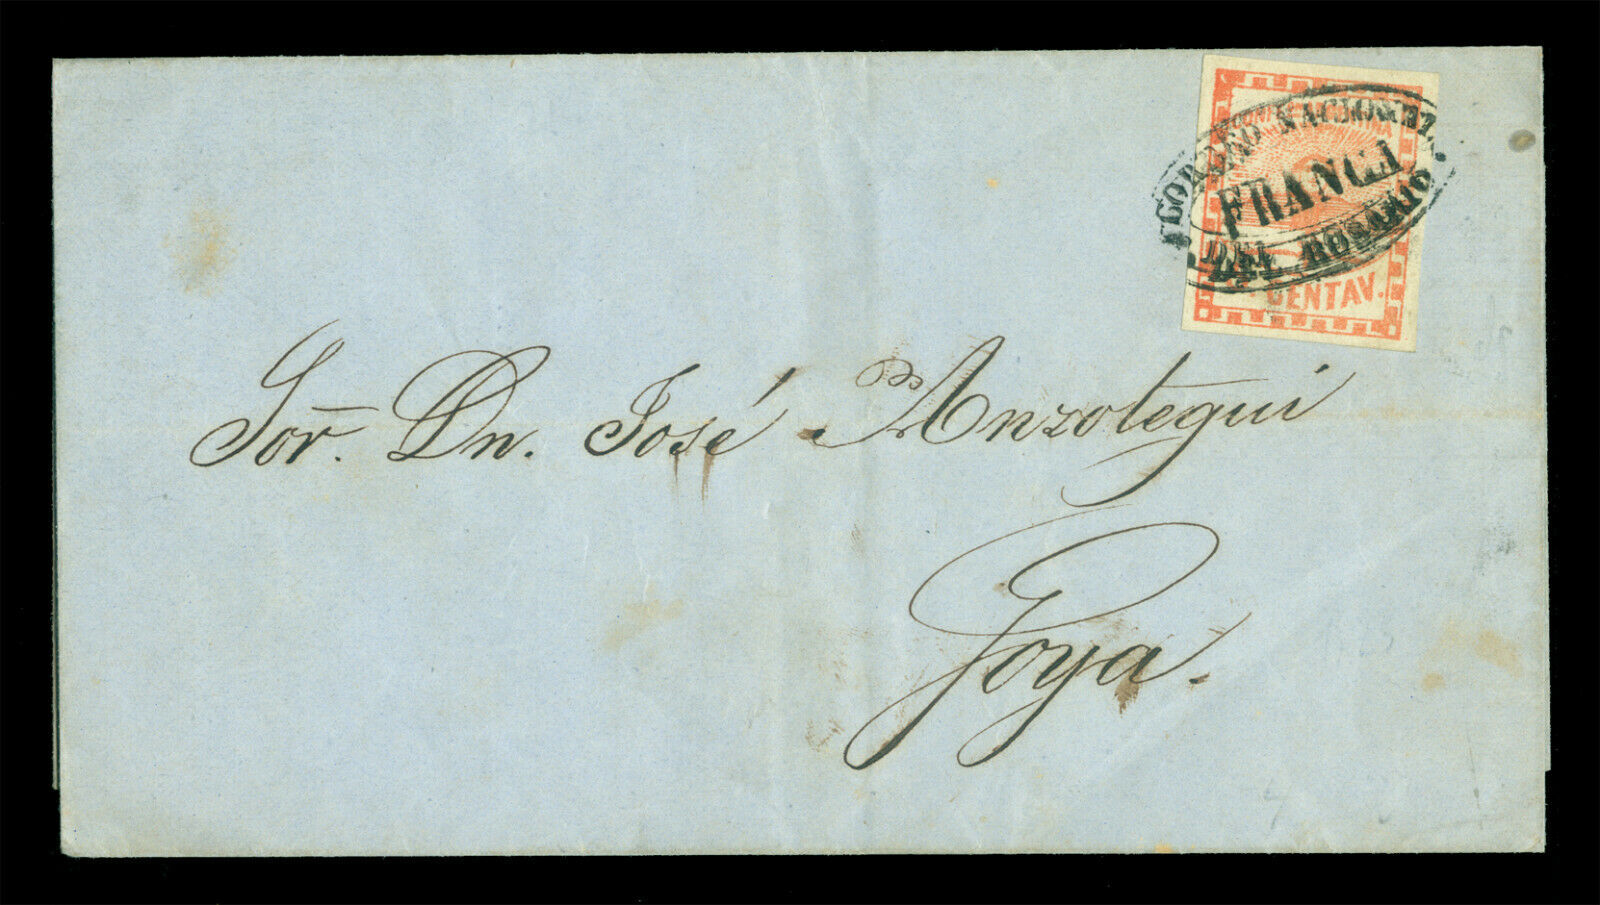 CORREO NACIONAL
FRANCA
DEL ROSARIO.
CENTAV.
Sor. Dn. José Anzotegui
Goya.